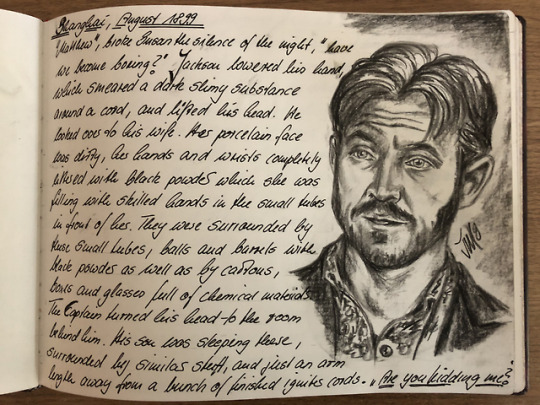 Shanghai, August 1899
"Matthew", broke Susan the silence of the night, "have
we become boring?" Jackson lowered his hand,
which smeared a dark slimy substance
around a cord, and lifted his head. He
looked over to his wife. Her porcelain face
was dirty, her hands and wrists completely
littered with black powder which she was
filling with skilled hands in the small tubes
in front of her. They were surrounded by
these small tubes, balls and barrels with
black powder as well as by cartons,
boxes and glasses full of chemical materials.
The Captain turned his head to the room
behind him. His son was sleeping there,
surrounded by similar stuff, and just an arm
length away from a bunch of finished ignite cords. "Are you kidding me?"